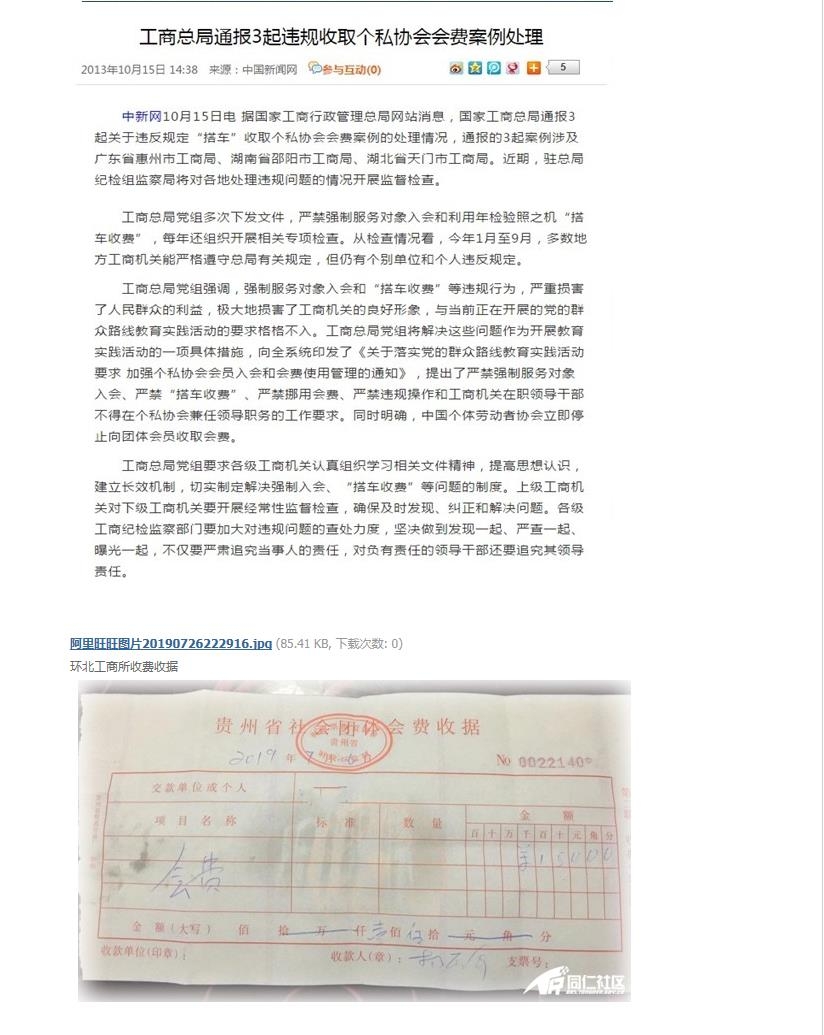 工商总局通报3起违规收取个私协会会费案例处理
2013年10月15日 14:38 来源：中国新闻网 参与互动(0) 5
中新网10月15日电 据国家工商行政管理总局网站消息，国家工商总局通报3
起关于违反规定“搭车”收取个私协会会费案例的处理情况，通报的3起案例涉及
广东省惠州市工商局、湖南省邵阳市工商局、湖北省天门市工商局。近期，驻总局
纪检组监察局将对各地处理违规问题的情况开展监督检查。
工商总局党组多次下发文件，严禁强制服务对象入会和利用年检验照之机“搭
车收费”，每年还组织开展相关专项检查。从检查情况看，今年1月至9月，多数地
方工商机关能严格遵守总局有关规定，但仍有个别单位和个人违反规定。
工商总局党组强调，强制服务对象入会和“搭车收费”等违规行为，严重损害
了人民群众的利益，极大地损害了工商机关的良好形象，与当前正在开展的党的群
众路线教育实践活动的要求格格不入。工商总局党组将解决这些问题作为开展教育
实践活动的一项具体措施，向全系统印发了《关于落实党的群众路线教育实践活动
要求 加强个私协会会员入会和会费使用管理的通知》，提出了严禁强制服务对象
入会、严禁“搭车收费”、严禁挪用会费、严禁违规操作和工商机关在职领导干部
不得在个私协会兼任领导职务的工作要求。同时明确，中国个体劳动者协会立即停
止向团体会员收取会费。
工商总局党组要求各级工商机关认真组织学习相关文件精神，提高思想认识，
建立长效机制，切实制定解决强制入会、“搭车收费”等问题的制度。上级工商机
关对下级工商机关要开展经常性监督检查，确保及时发现、纠正和解决问题。各级
工商纪检监察部门要加大对违规问题的查处力度，坚决做到发现一起、严查一起、
曝光一起，不仅要严肃追究当事人的责任，对负有责任的领导干部还要追究其领导
责任。
阿里旺旺图片20190726222916.jpg (85.41 KB, 下载次数: 0)
环北工商所收费收据
贵州省社会团体会费收据
贵州省
2019 年 7
No 0022140
交款单位或个人
项目名称 标准 数量 金额
百 十 万 千 百 十 元 角 分
会费 ¥ 1 5 0 0 0
金额(大写) 佰 拾 万 仟 壹 佰 伍 拾 元 角 分
收款单位(印章)： 收款人(章)： 支票号：
同仁社区